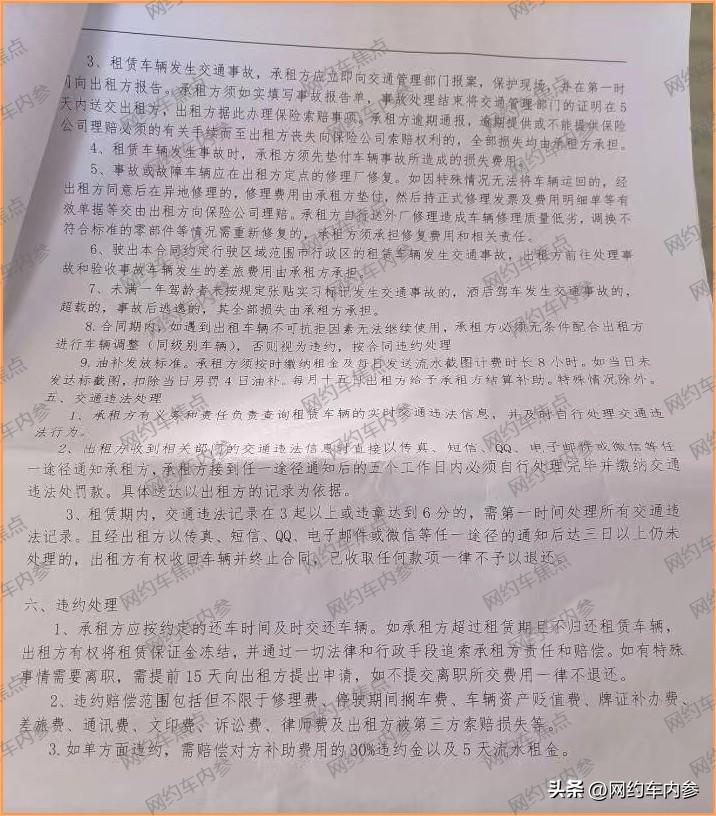 3、租赁车辆发生交通事故，承租方应立即向交通管理部门报案，保护现场，并在第一时
间向出租方报告。承租方须如实填写事故报告单，事故处理结束将交通管理部门的证明在5
天内送交出租方，出租方据此办理保险索赔事项。承租方逾期通报，逾期提供或不能提供保险
公司理赔必须的有关手续而至出租方丧失向保险公司索赔权利的，全部损失均由承租方承担。
4、租赁车辆发生事故时，承租方须先垫付车辆事故所造成的损失费用。
5、事故或故障车辆应在出租方定点的修理厂修复。如因特殊情况无法将车辆运回的，经
出租方同意后在异地修理的，修理费用由承租方垫住，然后持正式修理发票及费用明细单等有
效单据等交由出租方向保险公司理赔。承租方自行送外厂修理造成车辆修理质量低劣，调换不
符合标准的零部件等情况需重新修复的，承租方须承担修复费用和相关责任。
6、驶出本合同约定行驶区域范围市行政区的租赁车辆发生交通事故，出租方前往处理事
故和验收事故车辆发生的差旅费用由承租方承担。
7、未满一年驾龄者未按规定张贴实习标记发生交通事故的，酒后驾车发生交通事故的，
超载的，事故后逃逸的，其全部损失由承租方承担。
8.合同期内，如遇到出租车辆不可抗拒因素无法继续使用，承租方必须无条件配合出租方
进行车辆调整（同级别车辆），否则视为违约，按合同违约处理
9.油补发放标准。承租方须按时缴纳租金及每日发送流水截图计费时长8小时。如当日未
发达标截图，扣除当日另罚4日油补。每月十五日出租方给予承租方结算补助。特殊情况除外。
五、交通违法处理
1、承租方有义务和责任负责查询租赁车辆的实时交通违法信息，并及时自行处理交通违
法行为。
2、出租方收到相关部门的交通违法信息时直接以传真、短信、QQ、电子邮件或微信等任
一途径通知承租方，承租方接到任一途径通知后的五个工作日内必须自行处理完毕并缴纳交通
违法处罚款。具体送达以出租方的记录为依据。
3、租赁期内，交通违法记录在3起以上或违章达到6分的，需第一时间处理所有交通违
法记录。且经出租方以传真、短信、QQ、电子邮件或微信等任一途径的通知后达三日以上仍未
处理的，出租方有权收回车辆并终止合同，已收取任何款项一律不予以退还。
六、违约处理
1、承租方应按约定的还车时间及时交还车辆。如承租方超过租赁期且不归还租赁车辆，
出租方有权将租赁保证金冻结，并通过一切法律和行政手段追索承租方责任和赔偿。如有特殊
事情需要离职，需提前15天向出租方提出申请，如不提交离职所交费用一律不退还。
2、违约赔偿范围包括但不限于修理费、停驶期间搁车费、车辆资产贬值费、牌证补办费、
差旅费、通讯费、文印费、诉讼费、律师费及出租方被第三方索赔损失等。
3.如单方面违约，需赔偿对方补助费用的30%违约金以及5天流水租金。
头条 @网约车内参